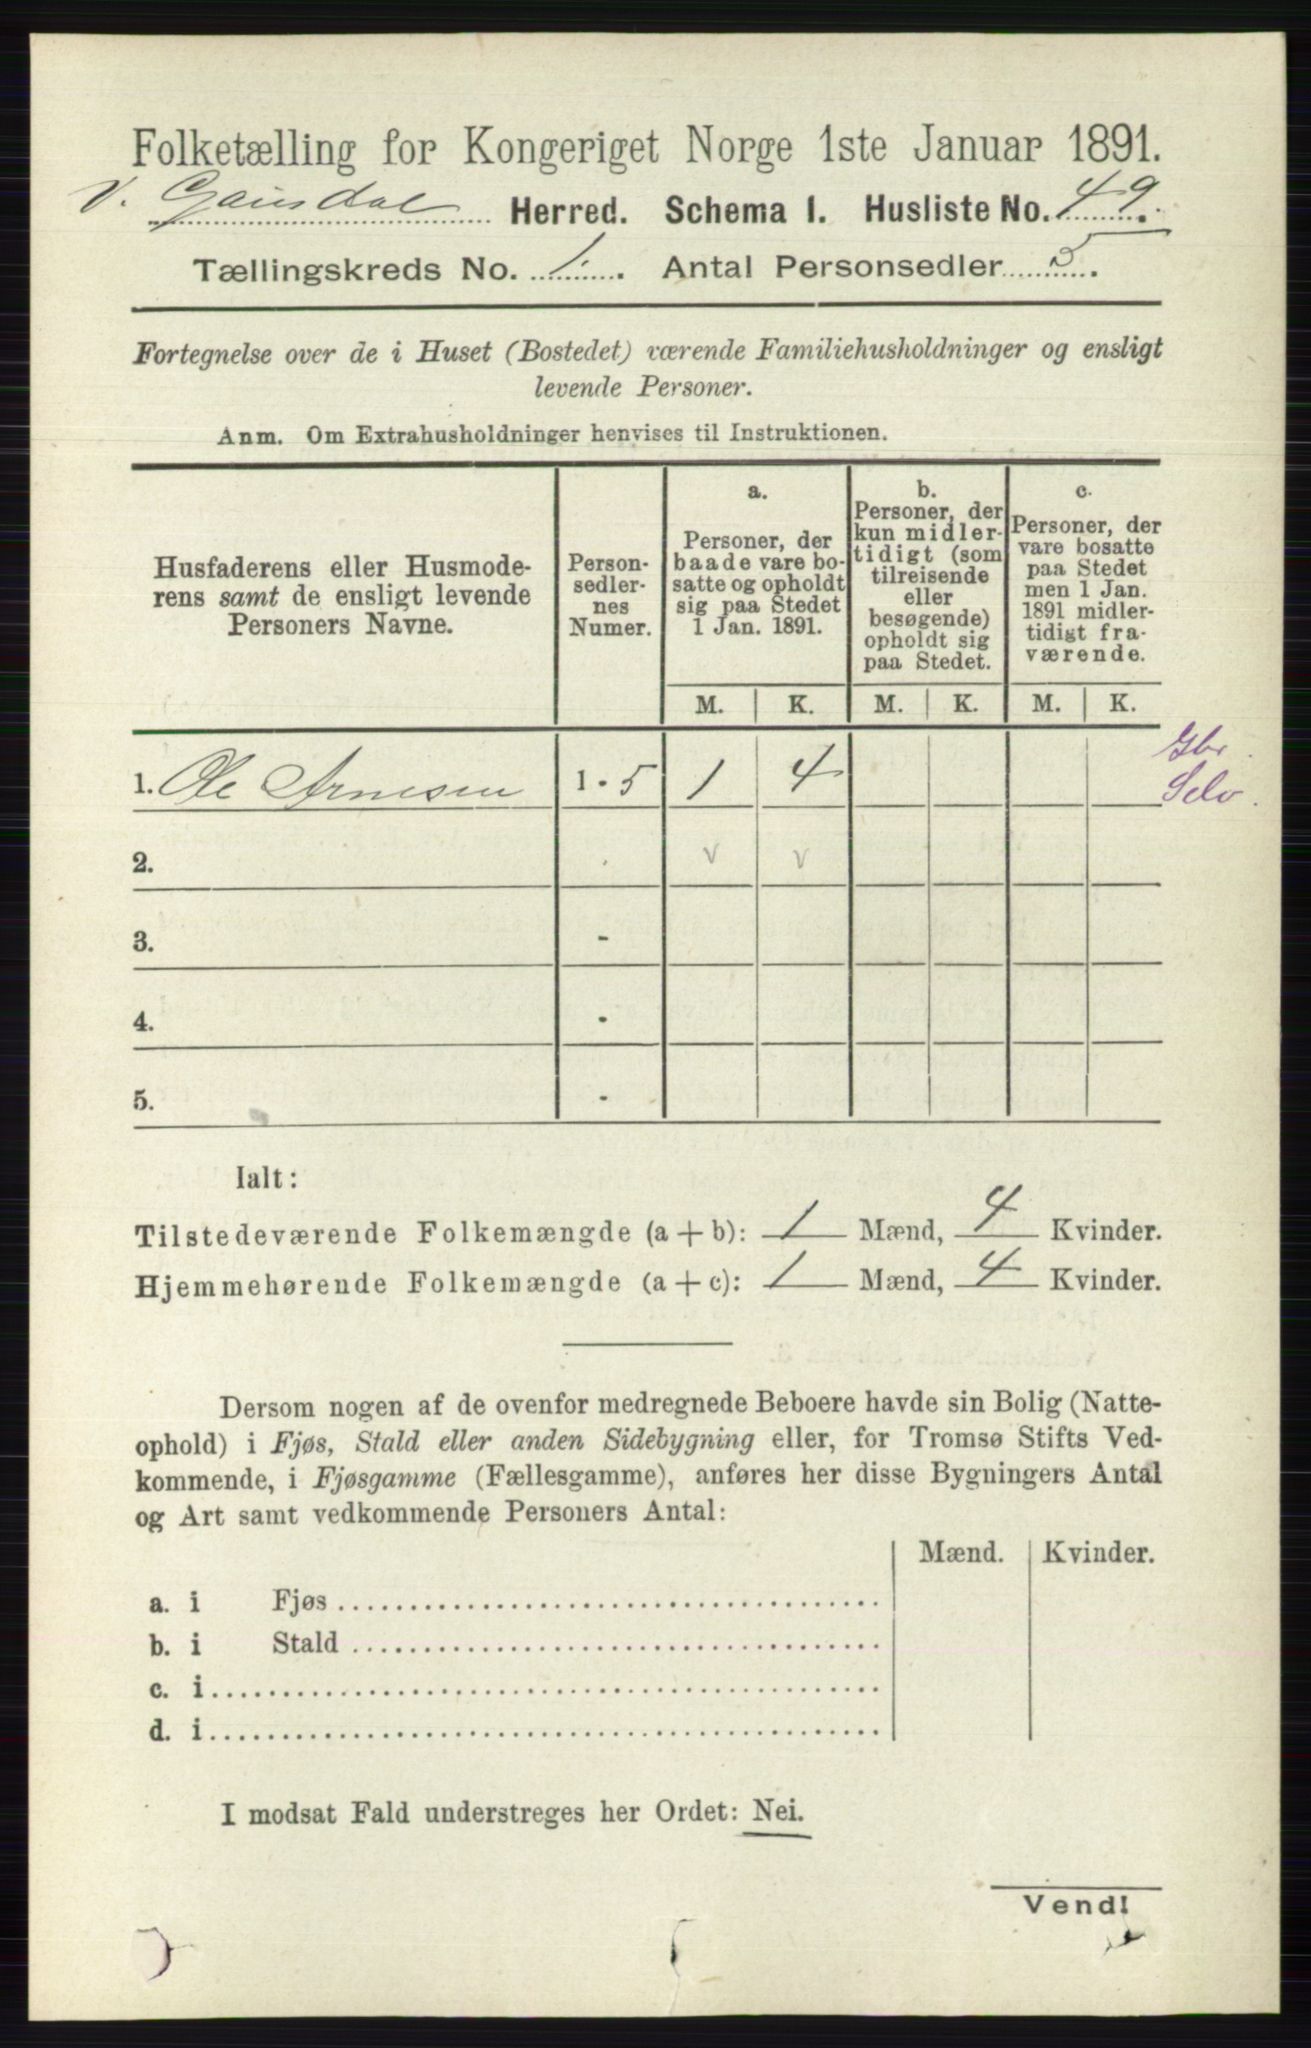 Folketælling for Kongeriget Norge 1ste Januar 1891.
V. Gausdal Herred. Schema I. Husliste No. 49.
Tællingskreds No. 1. Antal Personsedler 5.
Fortegnelse over de i Huset (Bostedet) værende Familiehusholdninger og ensligt
levende Personer.
Anm. Om Extrahusholdninger henvises til Instruktionen.
Husfaderens eller Husmode-
rens samt de ensligt levende
Personers Navne.
Person-
sedler-
nes
Numer.
a.
Personer, der
baade vare bo-
satte og opholdt
sig paa Stedet
1 Jan. 1891.
b.
Personer, der
kun midler-
tidigt (som
tilreisende
eller
besøgende)
opholdt sig
paa Stedet.
c.
Personer, der
vare bosatte
paa Stedet
men 1 Jan.
1891 midler-
tidigt fra-
værende.
M. K. M. K. M. K.
1. Ole Arnesen 1 - 5 1 4 Gbr. Selv.
2. v v
3. -
4. -
5. -
Ialt:
Tilstedeværende Folkemængde (a + b): 1 Mænd, 4 Kvinder.
Hjemmehørende Folkemængde (a + c): 1 Mænd, 4 Kvinder.
Dersom nogen af de ovenfor medregnede Beboere havde sin Bolig (Natte-
ophold) i Fjøs, Stald eller anden Sidebygning eller, for Tromsø Stifts Ved-
kommende, i Fjøsgamme (Fællesgamme), anføres her disse Bygningers Antal
og Art samt vedkommende Personers Antal:
Mænd. Kvinder.
a. i Fjøs
b. i Stald
c. i
d. i
I modsat Fald understreges her Ordet: Nei.
Vend!